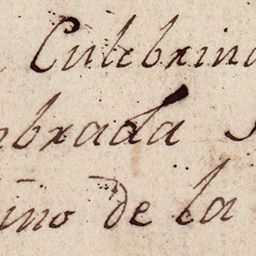 Culebrina
mbrada
ino de la